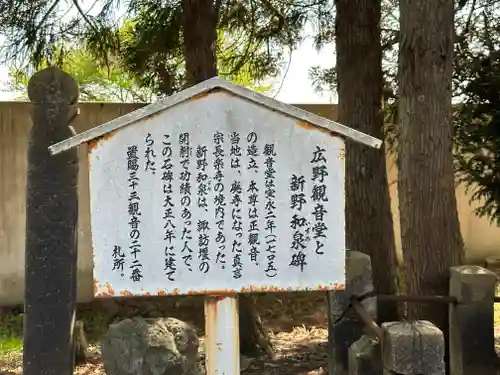 広野観音堂と
新野和泉碑
観音堂は宝永二年（一七〇五）
の造立、本尊は正観音。
当地は、廃寺になった真言
宗長楽寺の境内であった。
新野和泉は、諏訪堰の
開削で功績のあった人で、
この石碑は大正八年に建て
られた。
置賜三十三観音の二十二番
札所。